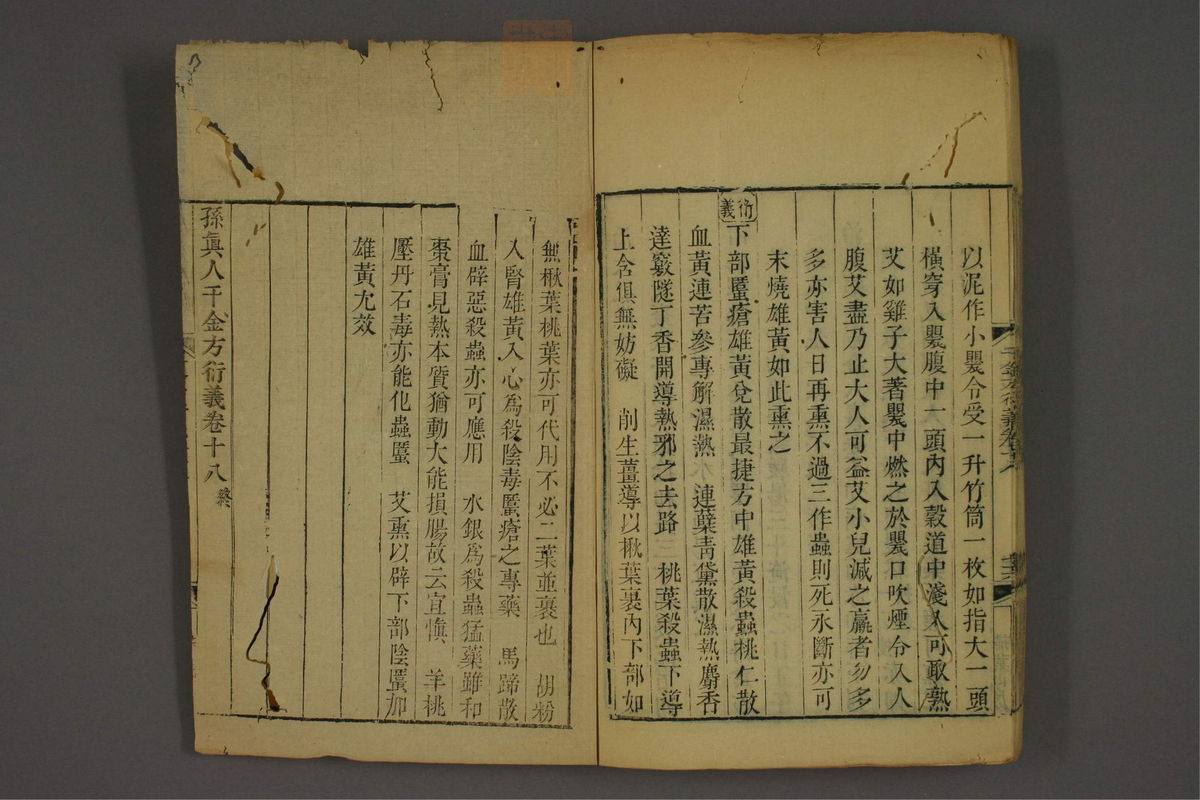 以泥作小甖令受一升竹筒一枚如指大一頭
橫穿入甖腹中一頭內入穀道中淺入可取熟
艾如雞子大著甖中燃之於甖口吹煙令入人
腹艾盡乃止大人可益艾小兒減之羸者勿多
多亦害人日再熏不過三作蟲則死永斷亦可
末燒雄黃如此熏之
衍義下部䘌瘡雄黃兌散最捷方中雄黃殺蟲桃仁散
血黃連苦參專解濕熱 連葉青黛散濕熱麝香
達竅隧丁香開導熱邪之去路 桃葉殺蟲下導
上含俱無妨礙 削生薑導以楸葉裹內下部如
無楸葉桃葉亦可代用不必二葉並裹也 胡粉
入腎雄黃入心為殺陰毒䘌瘡之專藥 馬蹄散
血辟惡殺蟲亦可應用 水銀為殺蟲猛藥雖和
棗膏見熱本質猶動大能損腸故云宜慎 羊桃
壓丹石毒亦能化蟲䘌 艾熏以辟下部陰䘌加
雄黃尤效
孫真人千金方衍義卷十八終
千金方衍義卷十八